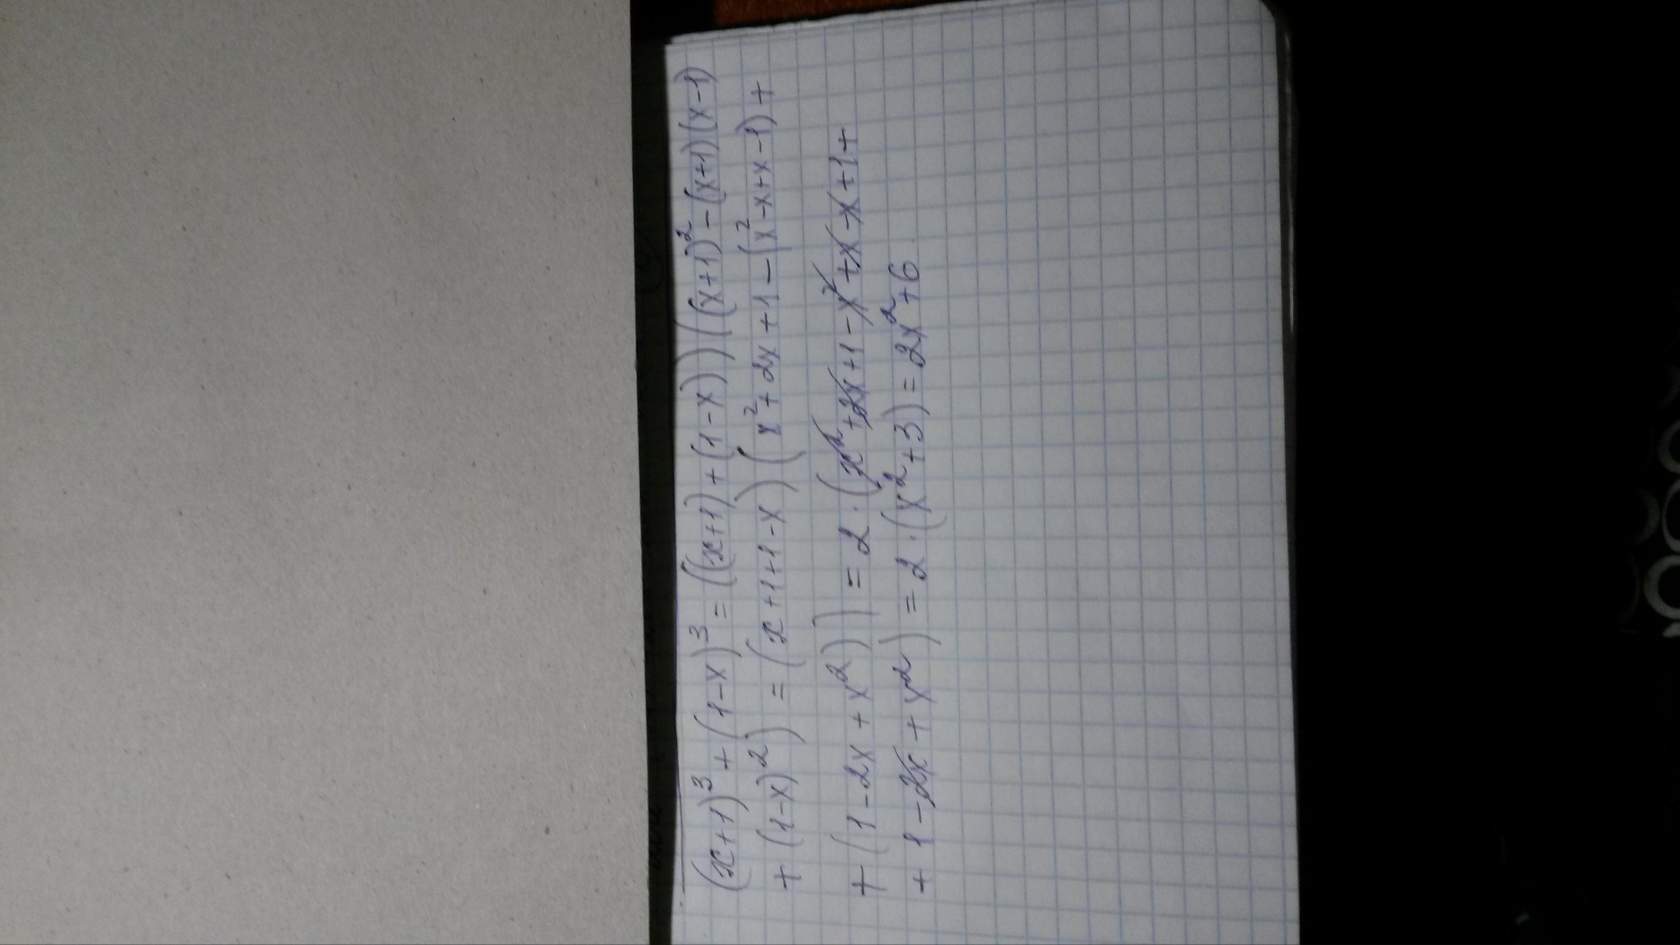 (x+1)³+(1-x)³=((x+1)+(1-x))((x+1)²-(x+1)(x-1)
+(1-x)²)=(x+1+1-x)(x²+2x+1-(x²-x+x-1)+
+(1-2x+x²))=2·(x²+2x+1-x²+x-x+1+
+1-2x+x²)=2·(x²+3)=2x²+6